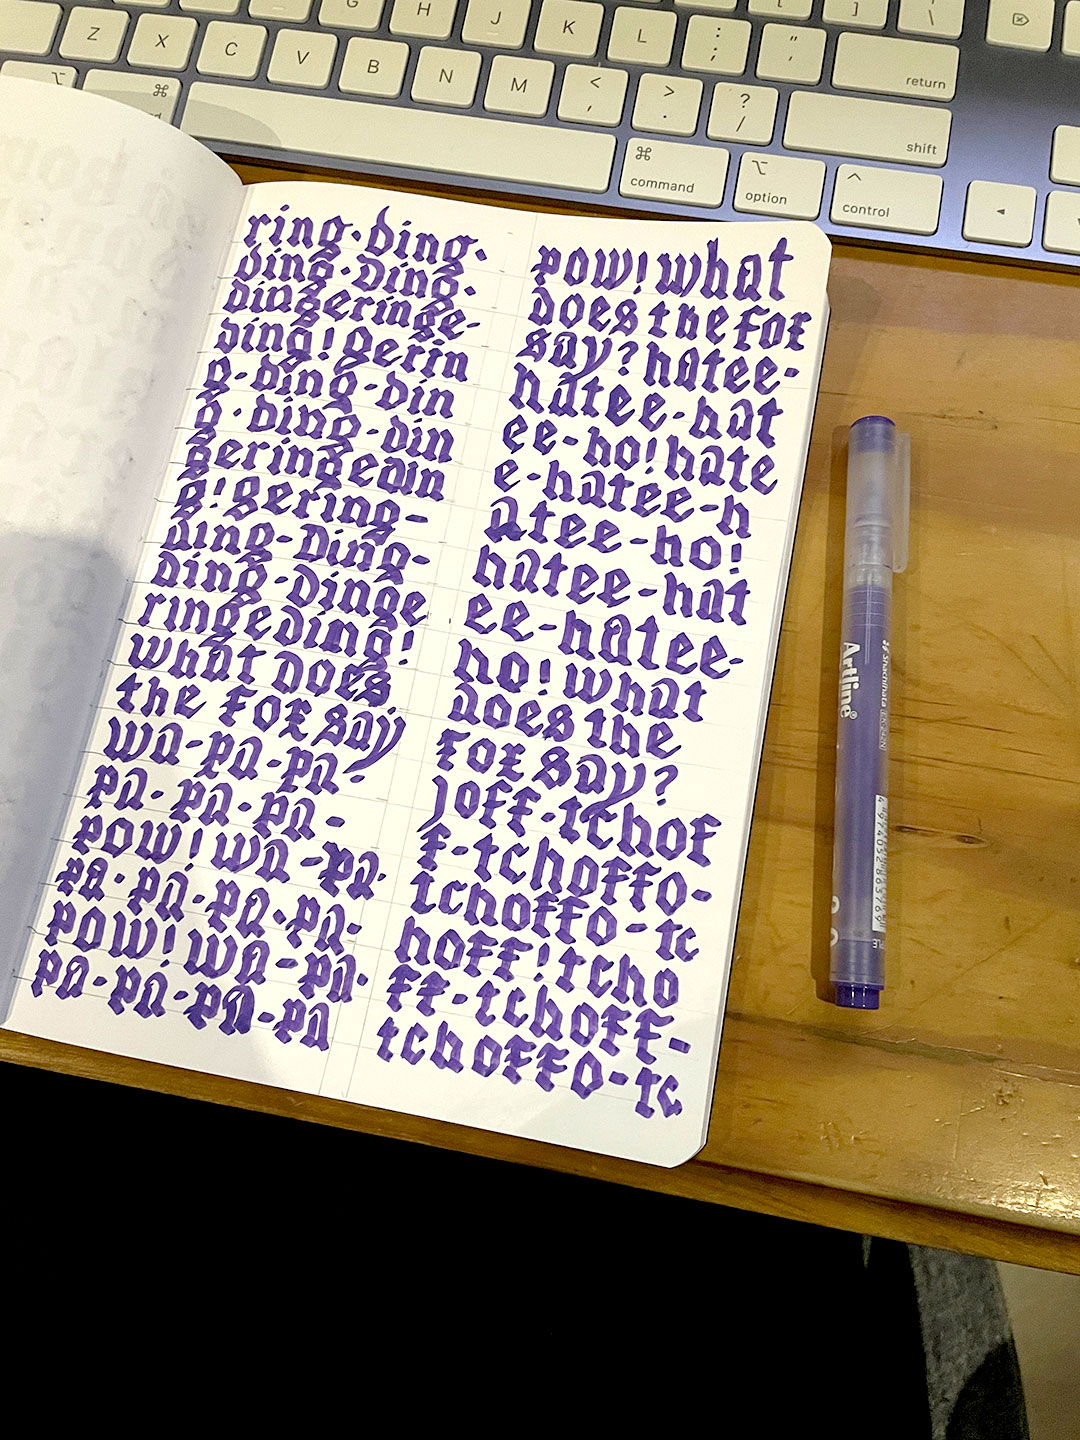 G H J
Z X C V B N M < , > . ? / K L ; : " ' ] \
return
shift
⌘ command
⌥ option
^ control
ring·ding·
ding·Ding·
dingeringe-
ding! gerin
g-ding-din
g·ding-din
geringedin
g! gering-
ding-Ding-
ding-Dinge
ringeding!
what Does
the Fox say
wa-pa-pa-
pa-pa-pa-
pow! wa-pa·
pa·pa-pa·pa-
pow! wa-pa·
pa-pa-pa-pa
pow! what
Does the Fox
say? hatee-
hatee-hat
ee-ho! hate
e-hatee-h
atee-ho!
hatee-hat
ee-hatee-
ho! what
Does the
Fox say?
joff-tchof
f-tchoffo-
tchoffo-tc
hoff! tcho
ff-tchoff-
tchoffo-tc
Artline®
shachihata
4 974052 865169